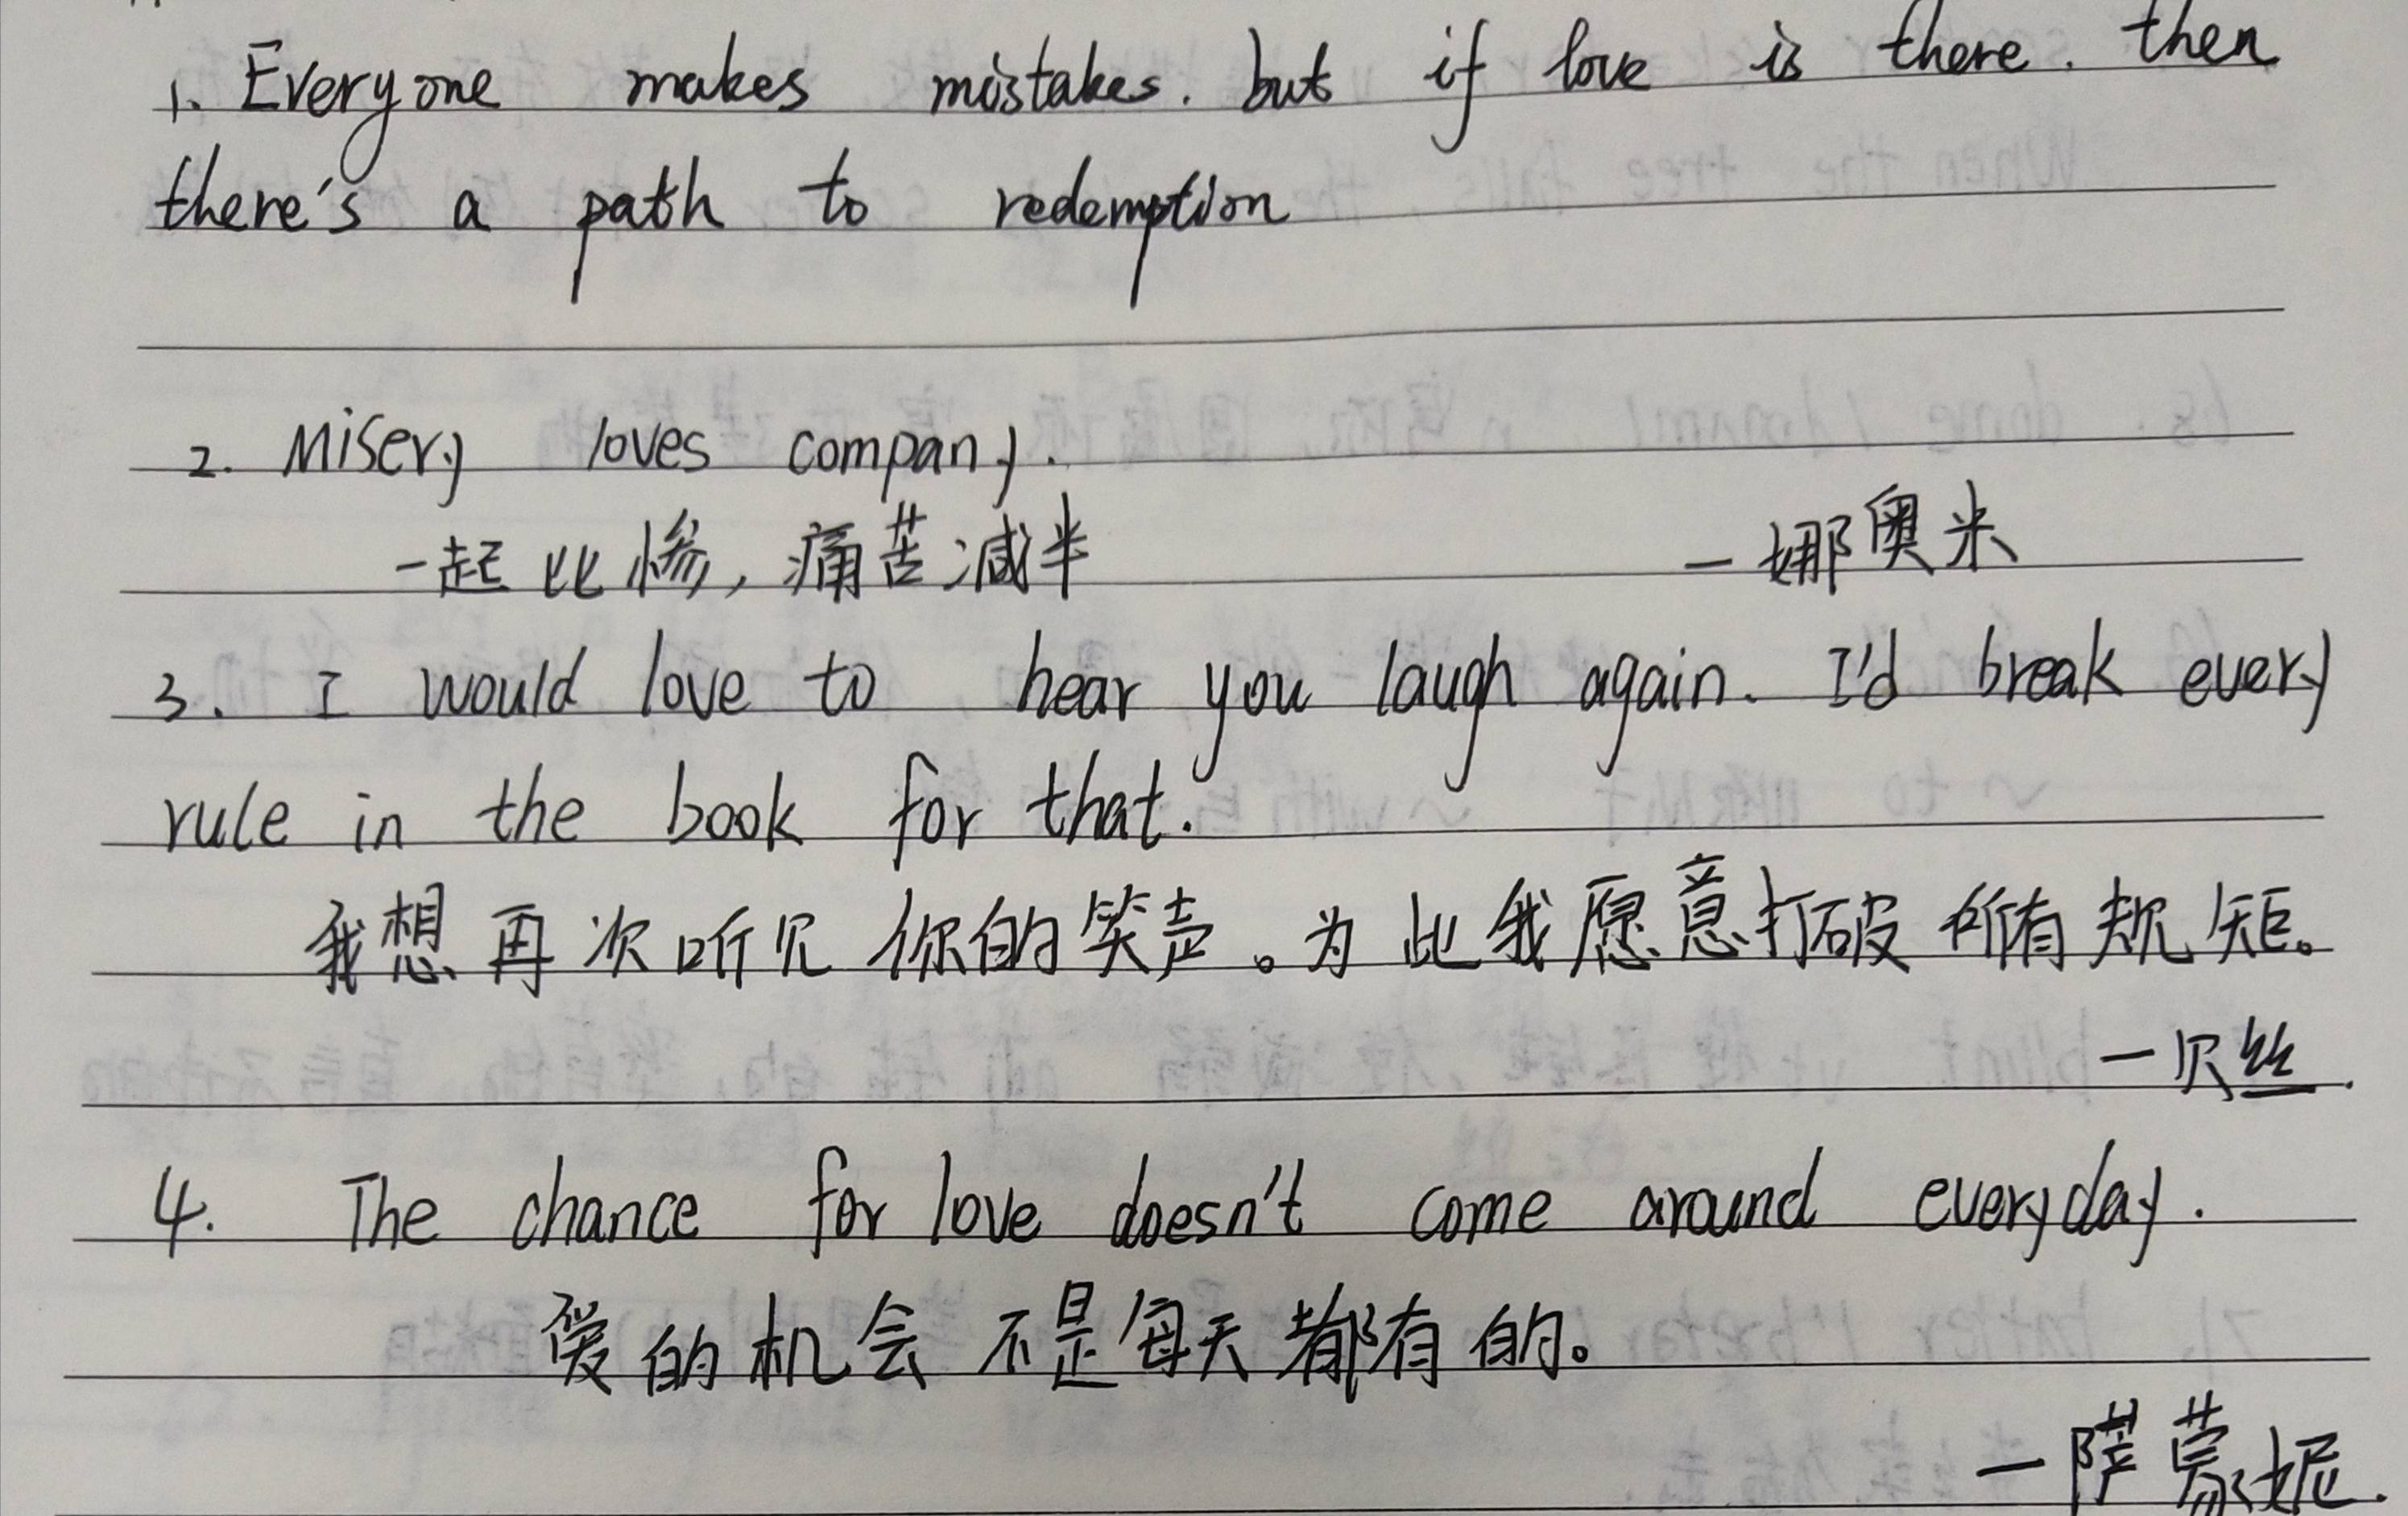 1. Everyone makes mistakes. but if love is there. then
there's a path to redemption
2. Misery loves company.
一起比惨，痛苦减半 —娜奥米
3. I would love to hear you laugh again. I'd break every
rule in the book for that.
我想再次听见你的笑声。为此我愿意打破所有规矩。
—贝丝.
4. The chance for love doesn't come around everyday.
爱的机会不是每天都有的。
—萨蒙妮.